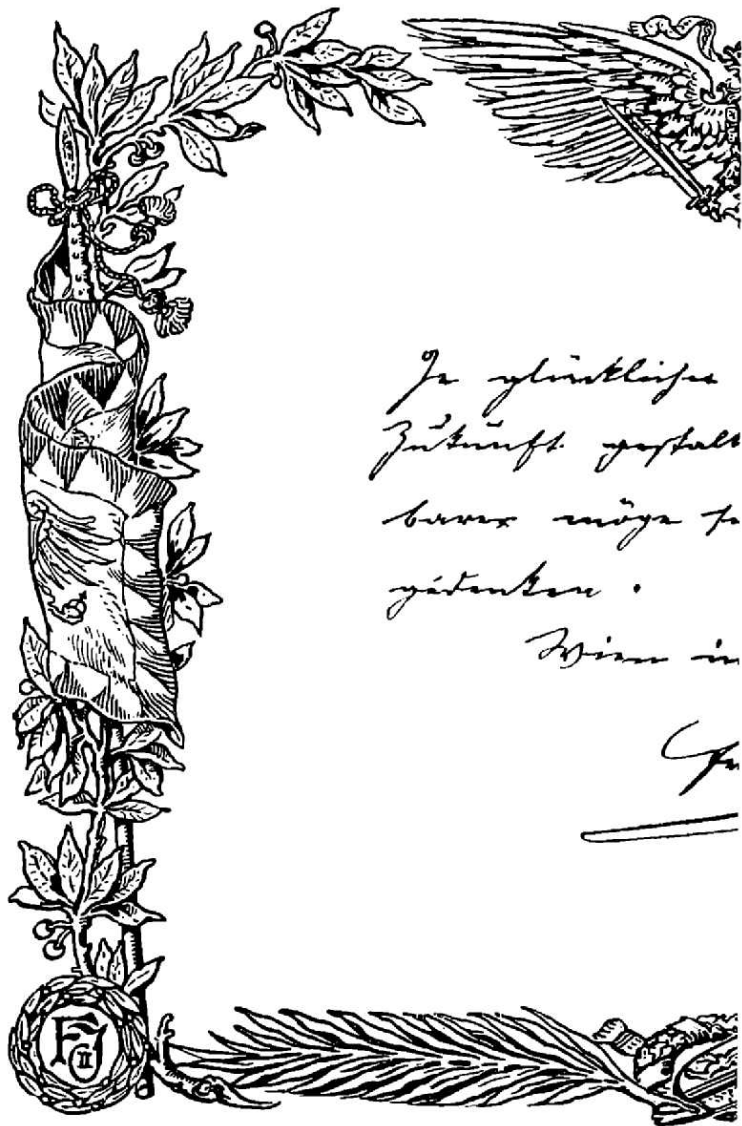 Je glücklicher
Zukunft gestalt
barer möge se
gedenken.
Wien
FJ
II